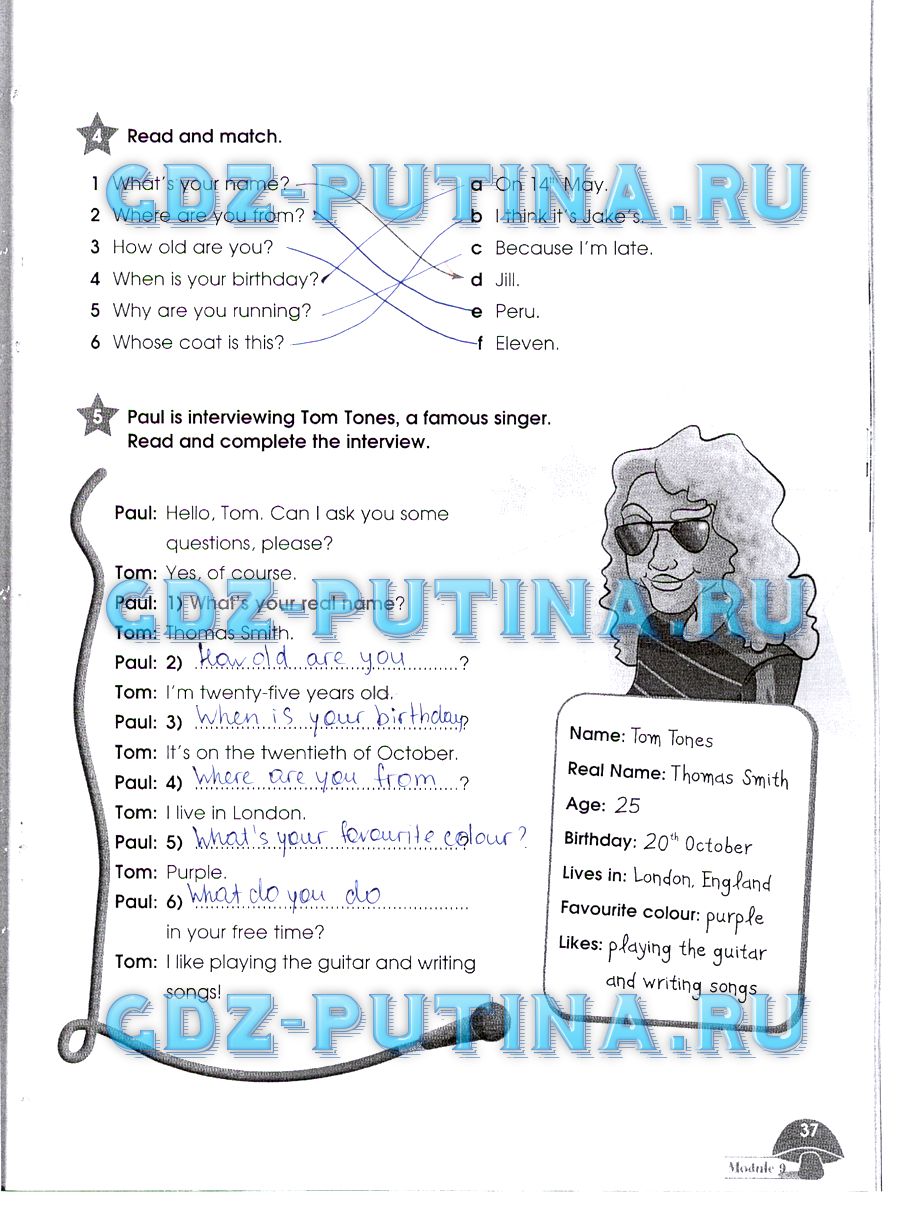 4 Read and match.
GDZ-PUTINA.RU
1 What's your name? a On 14th May.
2 Where are you from? b I think it's Jake's.
3 How old are you? c Because I'm late.
4 When is your birthday? d Jill.
5 Why are you running? e Peru.
6 Whose coat is this? f Eleven.
5 Paul is interviewing Tom Tones, a famous singer.
Read and complete the interview.
Paul: Hello, Tom. Can I ask you some
questions, please?
Tom: Yes, of course.
GDZ-PUTINA.RU
Paul: 1) What's your real name?
Tom: Thomas Smith.
Paul: 2) How old are you ?
Tom: I'm twenty-five years old.
Paul: 3) When is your birthday?
Tom: It's on the twentieth of October.
Paul: 4) Where are you from ?
Tom: I live in London.
Paul: 5) What's your favourite colour?
Tom: Purple.
Paul: 6) What do you do
in your free time?
Tom: I like playing the guitar and writing
songs!
Name: Tom Tones
Real Name: Thomas Smith
Age: 25
Birthday: 20th October
Lives in: London, England
Favourite colour: purple
Likes: playing the guitar
and writing songs
GDZ-PUTINA.RU
37
Module 9